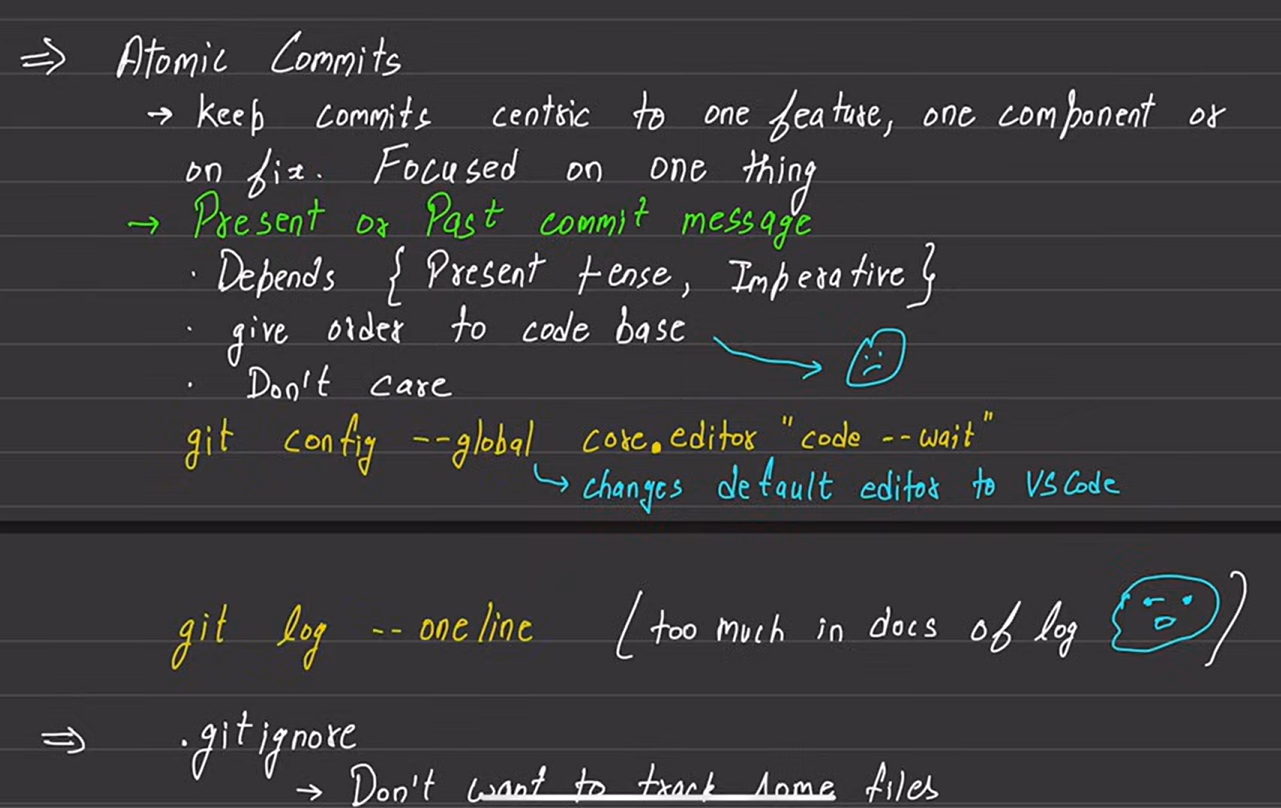 ⇒ Atomic Commits
→ keep commits centric to one feature, one component or
on fix. Focused on one thing
→ Present or Past commit message
· Depends { Present tense, Imperative }
· give order to code base
· Don't care
git config --global core.editor "code --wait"
↳ changes default editor to VS Code
git log --oneline (too much in docs of log )
⇒ .gitignore
→ Don't want to track some files